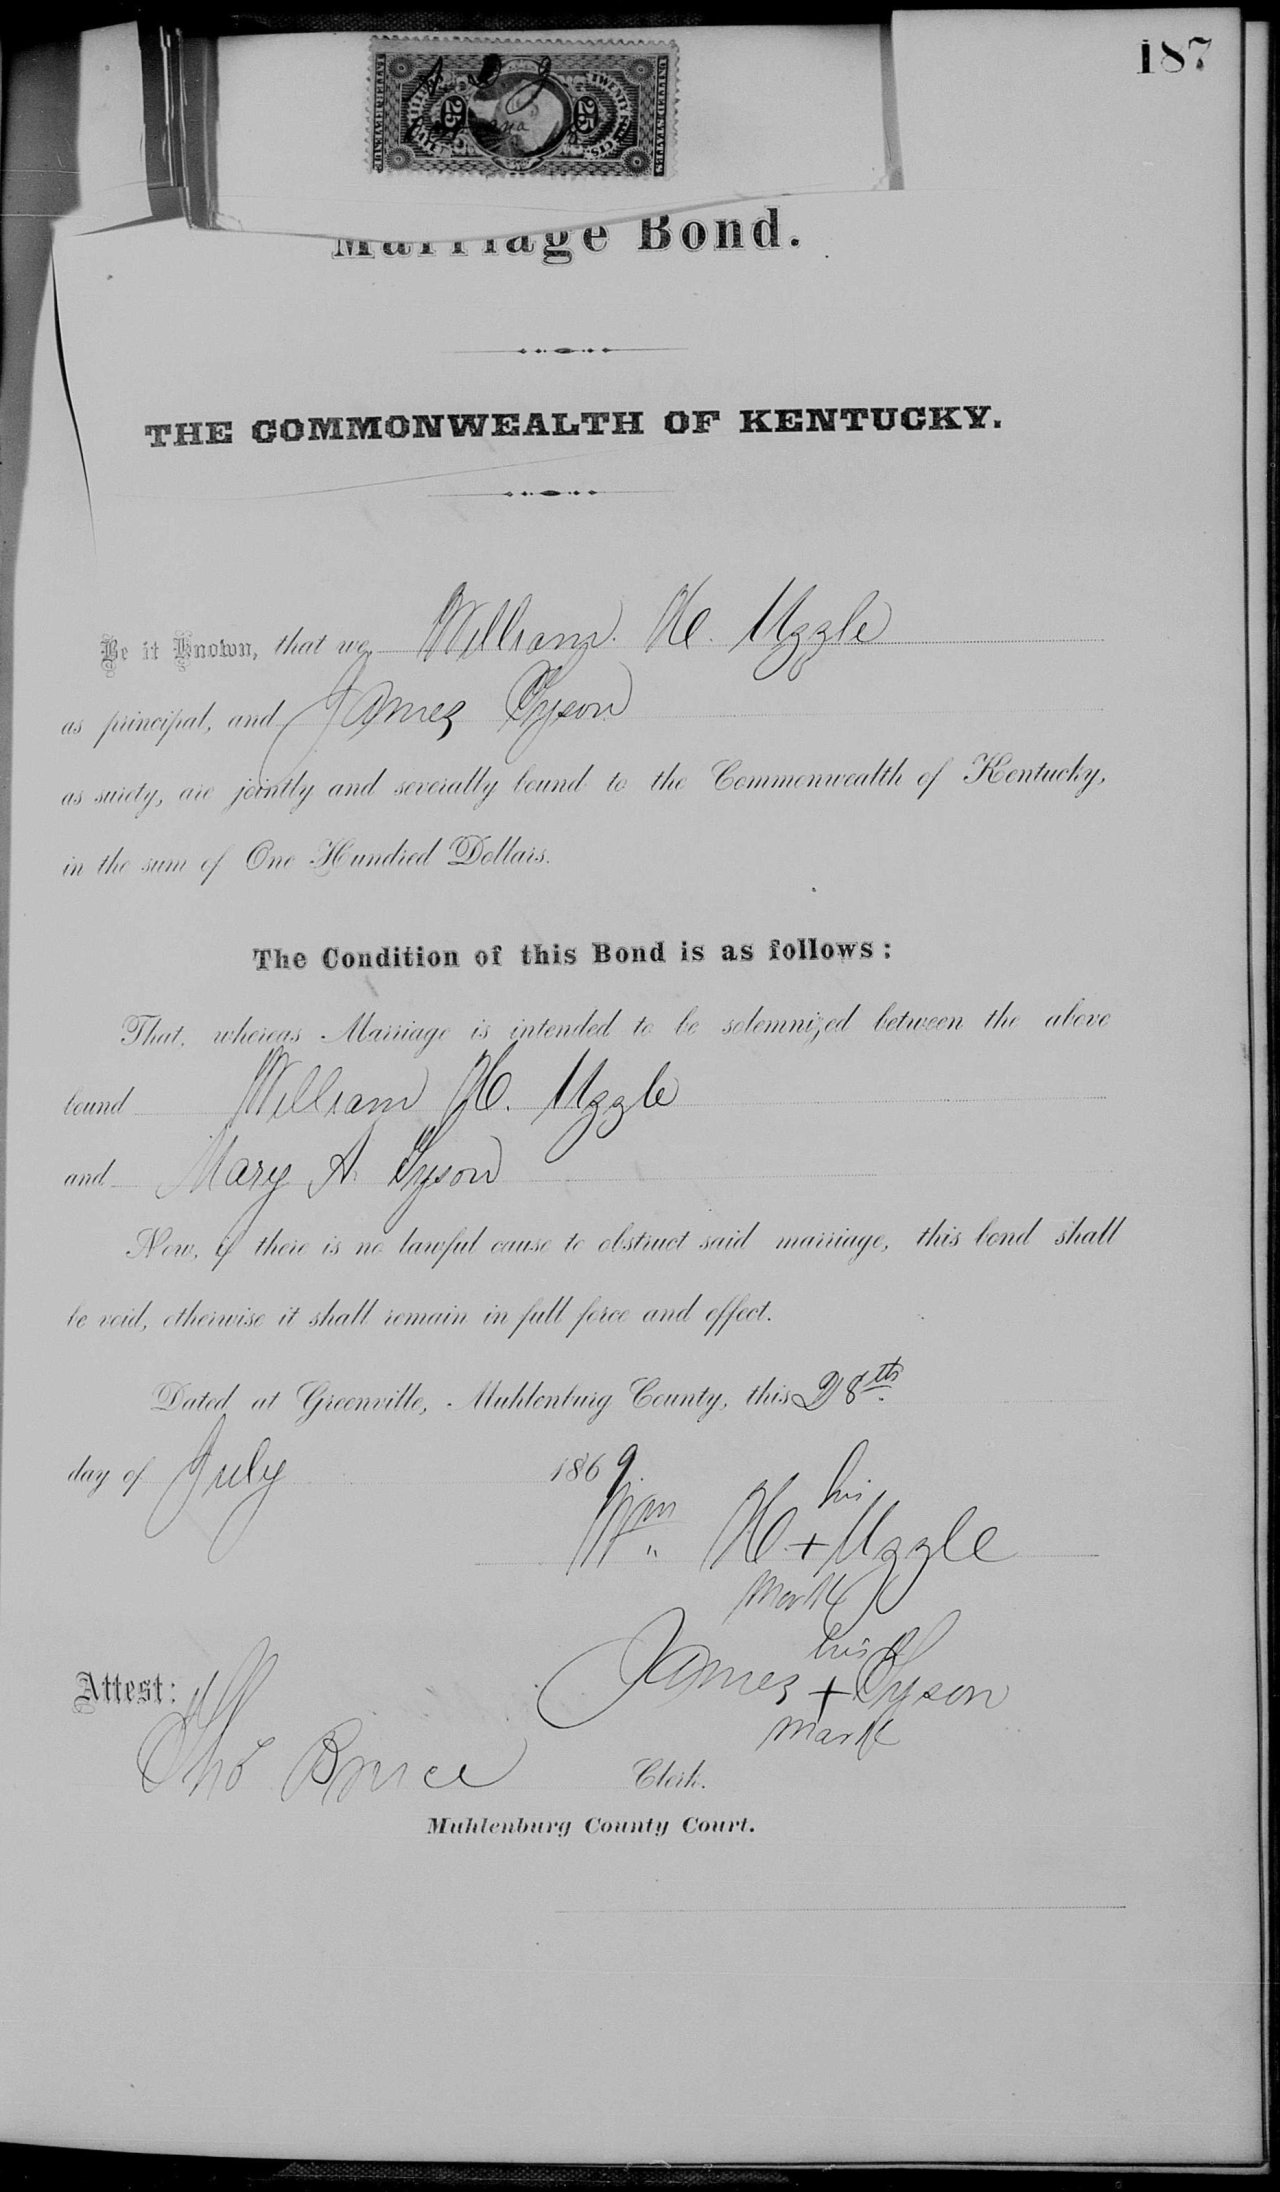 187
UNITED STATES
INTER. REVENUE
TWENTY FIVE CTS.
25 25
Marriage Bond.
THE COMMONWEALTH OF KENTUCKY.
Be it Known, that we William H. Uzzle
as principal, and James Tyson
as surety, are jointly and severally bound to the Commonwealth of Kentucky,
in the sum of One Hundred Dollars.
The Condition of this Bond is as follows:
That, whereas Marriage is intended to be solemnized between the above
bound William H. Uzzle
and Mary A. Tyson
Now, if there is no lawful cause to obstruct said marriage, this bond shall
be void, otherwise it shall remain in full force and effect.
Dated at Greenville, Muhlenburg County, this 28th
day of July 1869.
his
Wm H. + Uzzle
mark
his
James + Tyson
mark
Attest:
Tho Bruce Clerk.
Muhlenburg County Court.